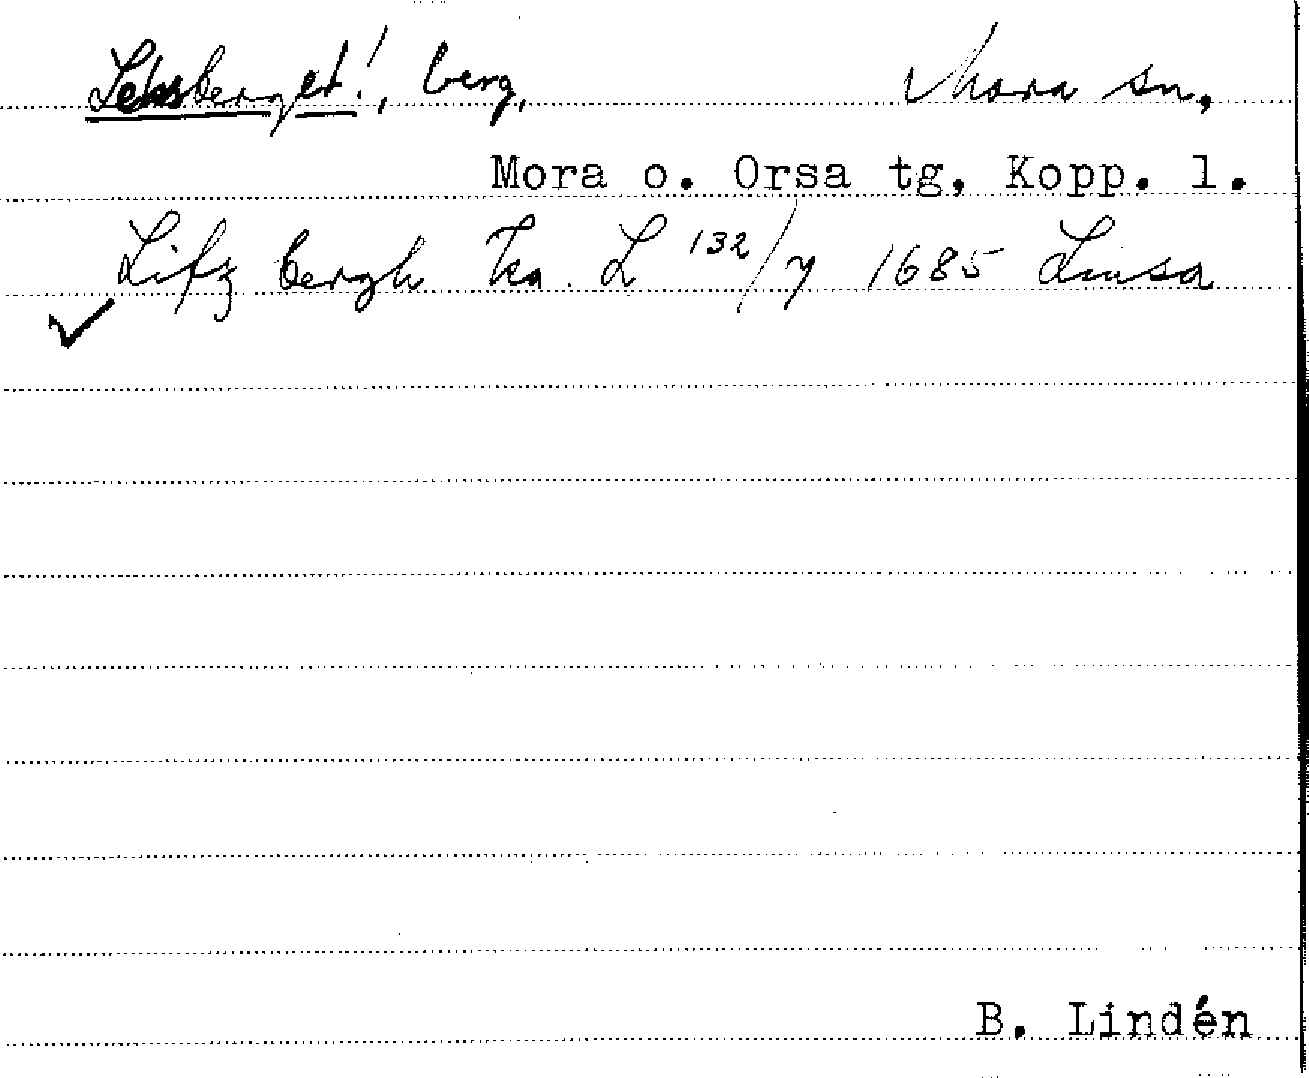 berget!, berg, Mora sn,
Mora o. Orsa tg, Kopp. l.
bergh Ka. L 132/7 1685 Limsa
B. Lindén